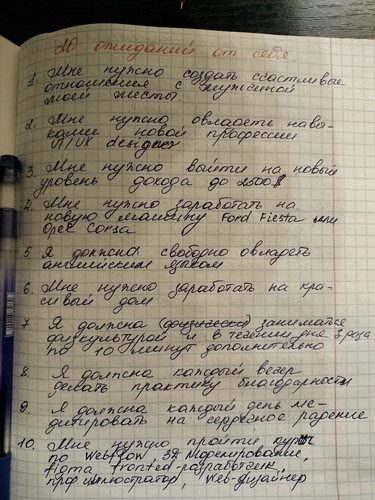 20 ожиданий от себя
1. Мне нужно создать счастливые
отношения с мужчиной
моей мечты
2. Мне нужно овладеть навы-
ками новой профессии
UI/UX designer
3. Мне нужно выйти на новый
уровень дохода до 2500$
4. Мне нужно заработать на
новую машину Ford Fiesta или
Opel Corsa
5. Я должна свободно овладеть
английским языком
6. Мне нужно заработать на кра-
сивый дом
7. Я должна (физически) заниматься
физкультурой и в течении дня 3 раза
по 10 минут дополнительно
8. Я должна каждый вечер
делать практику благодарности
9. Я должна каждый день ме-
дитировать на сердечное радение
10. Мне нужно пройти курсы
по Webflow, 3д моделирование,
figma, fronted-разработчик,
проф иллюстратор, Web-дизайнер